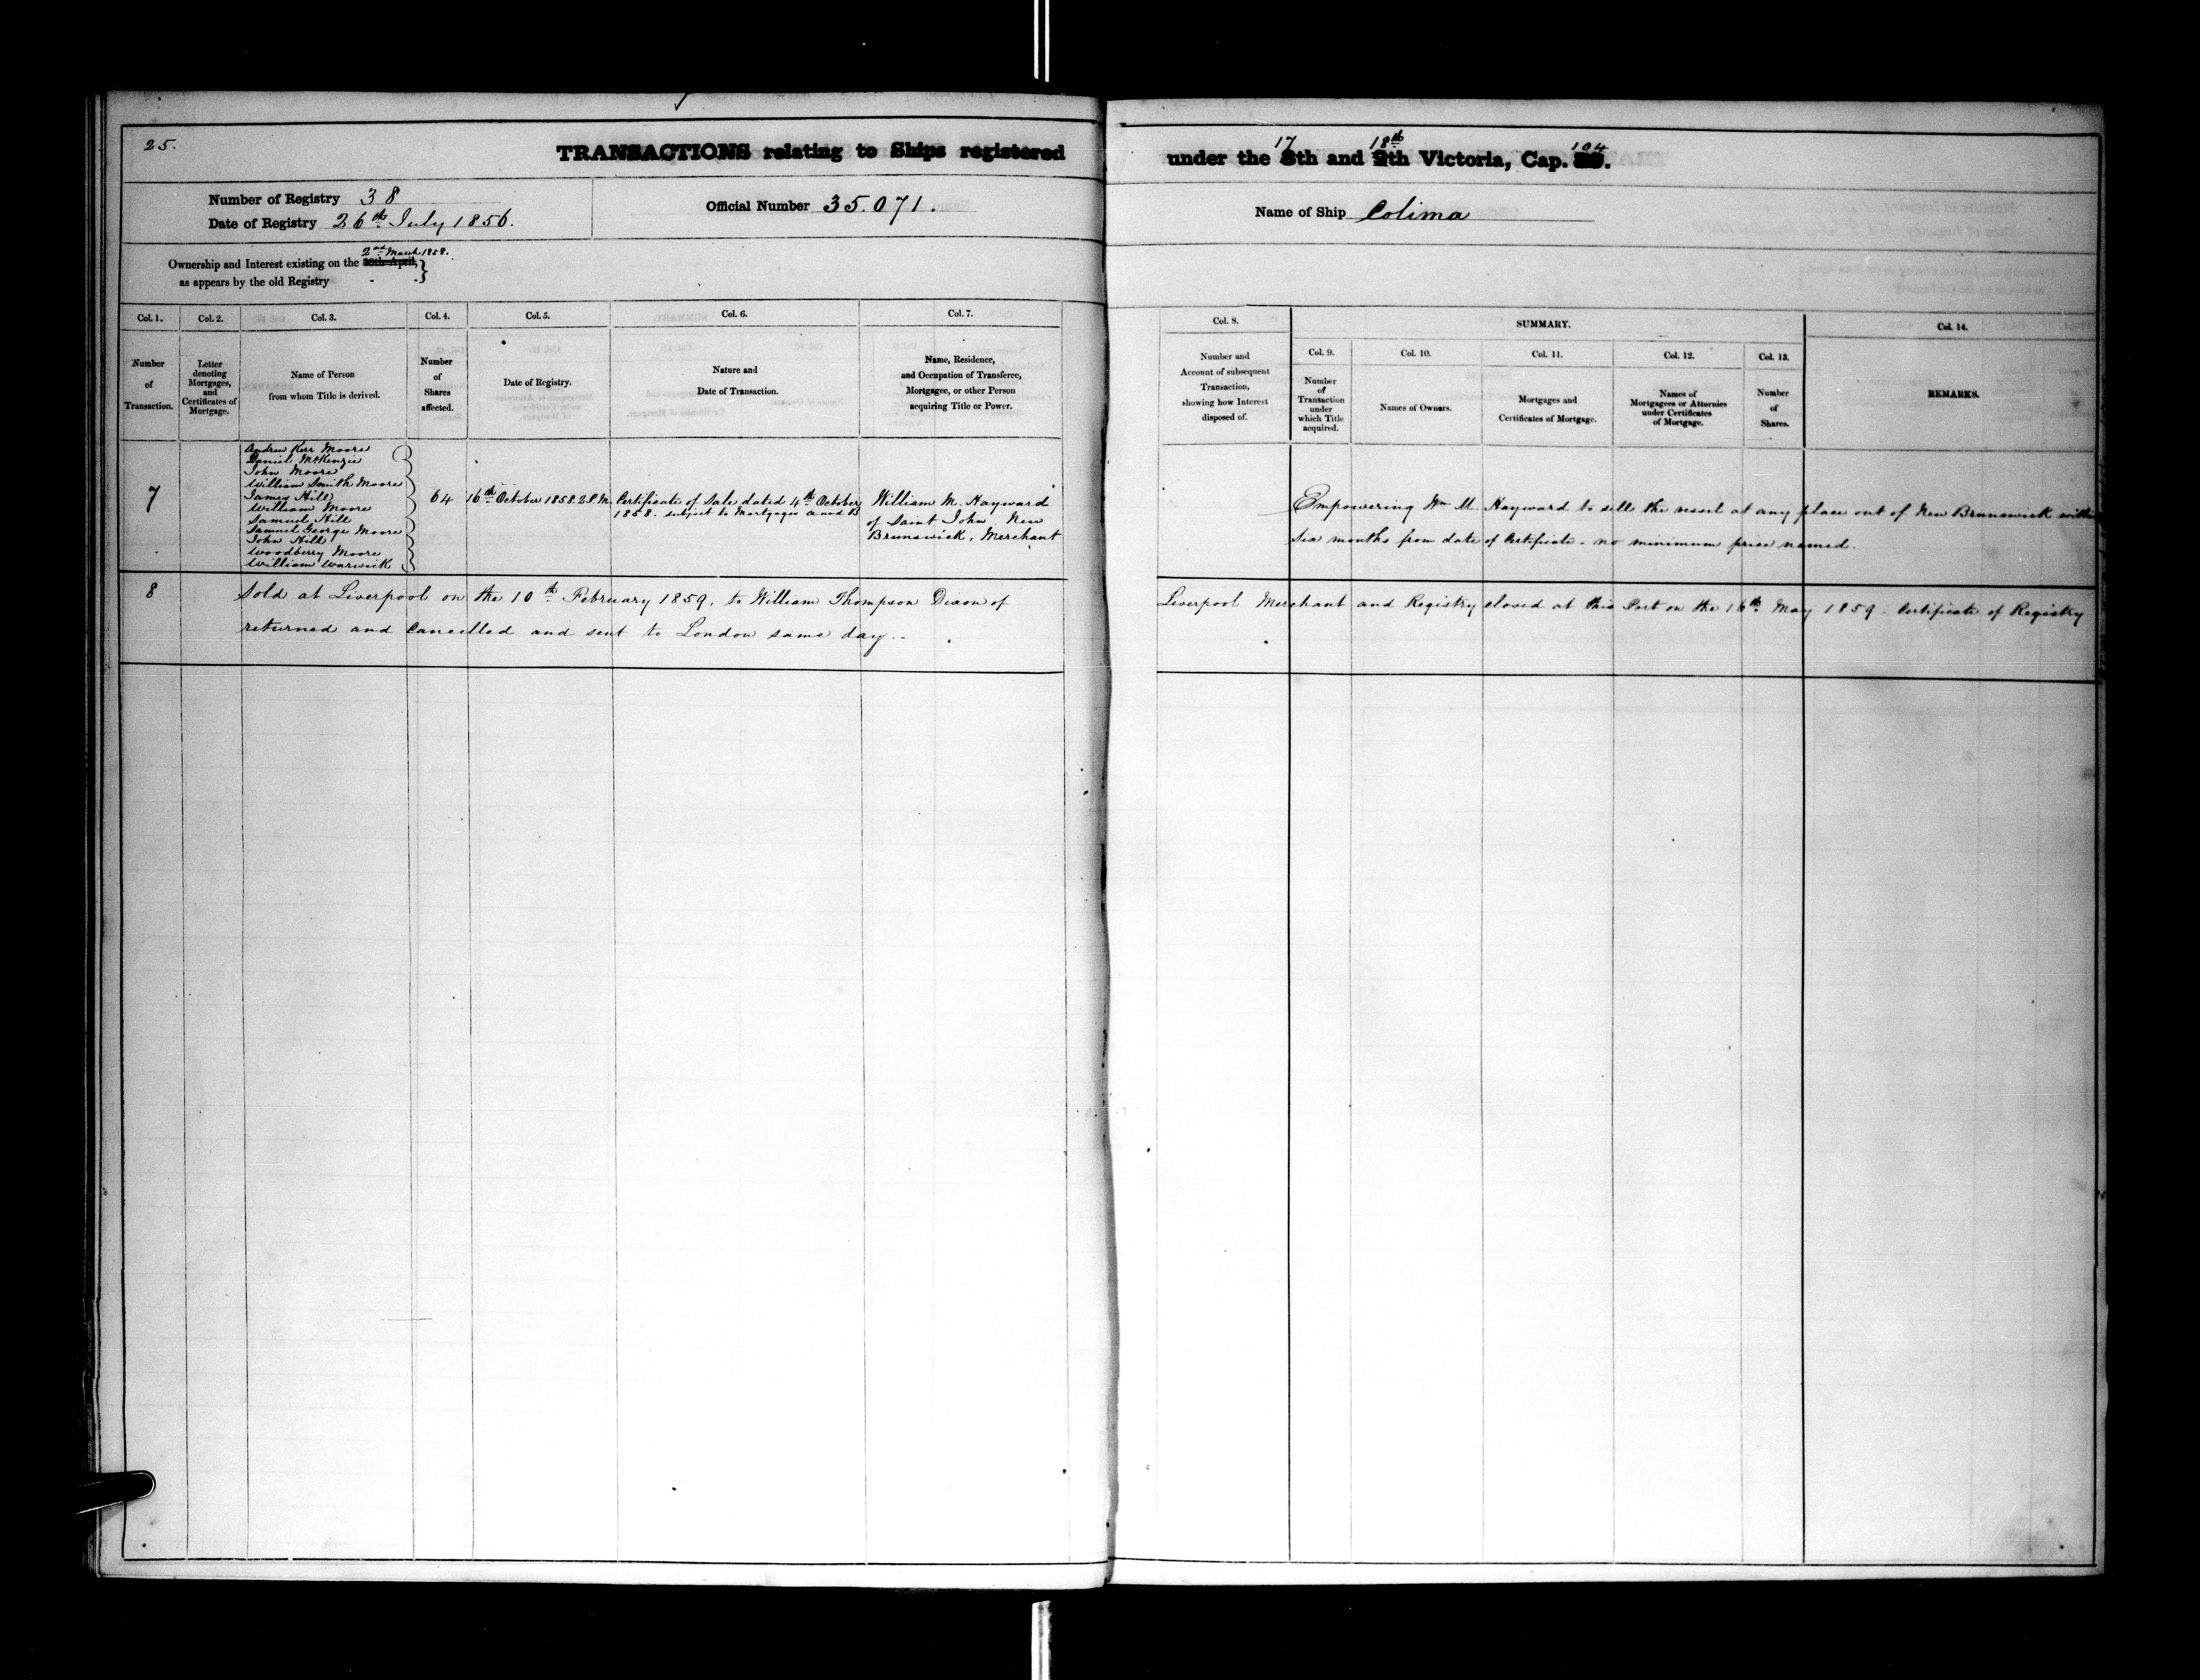 25.
TRANSACTIONS relating to Ships registered under the 17 8th and 18th 9th Victoria, Cap. 104
Number of Registry 38
Date of Registry 26th July 1856.
Official Number 35.071.
Name of Ship Colima
2nd March 1858.
Ownership and Interest existing on the 30th April,
as appears by the old Registry
Col. 1.
Number
of
Transaction.
Col. 2.
Letter
denoting
Mortgages,
and
Certificates of
Mortgage.
Col. 3.
Name of Person
from whom Title is derived.
Col. 4.
Number
of
Shares
affected.
Col. 5.
Date of Registry.
Col. 6.
Nature and
Date of Transaction.
Col. 7.
Name, Residence,
and Occupation of Transferee,
Mortgagee, or other Person
acquiring Title or Power.
Col. 8.
Number and
Account of subsequent
Transaction,
showing how Interest
disposed of.
SUMMARY.
Col. 9.
Number
of
Transaction
under
which Title
acquired.
Col. 10.
Names of Owners.
Col. 11.
Mortgages and
Certificates of Mortgage.
Col. 12.
Names of
Mortgagees or Attornies
under Certificates
of Mortgage.
Col. 13.
Number
of
Shares.
Col. 14.
REMARKS.
7
Andrew Kerr Moore
Daniel McKenzie
John Moore
William Smith Moore
James Hill
William Moore
Samuel Hill
Samuel George Moore
John Hill
Woodberry Moore
William Warwick
64
16th October 1858. 2 P.M.
Certificate of Sale dated 4th October
1858. subject to Mortgages A and B
William M. Hayward
of Saint John, New
Brunswick, Merchant
Empowering Wm M. Hayward to sell the vessel at any place out of New Brunswick within
six months from date of Certificate - no minimum price named.
8
Sold at Liverpool on the 10th February 1859. to William Thompson Dixon of Liverpool Merchant and Registry closed at this Port on the 16th May 1859 - Certificate of Registry
returned and cancelled and sent to London same day..